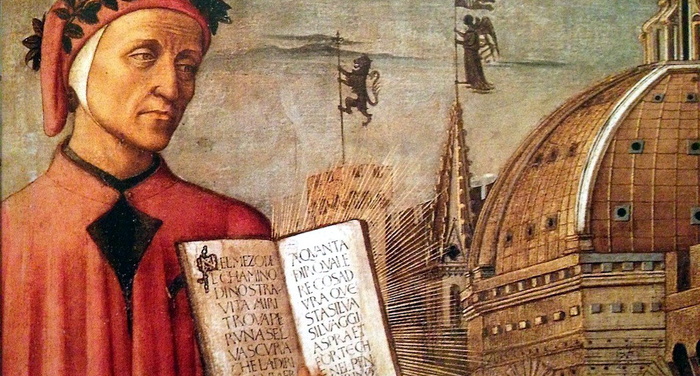 NEL MEZO DE
L CHAMINO
DI NOSTRA
VITA MIRI
TROVA PE
R VNA SEL
VA SCVRA
CHE LA DIRI
A QVANTA
DIR QVALE
RE COSA D
VRA QVE
STA SILVA
SILVAGGI
ASPRA ET
FORTE CH
NEL PEN